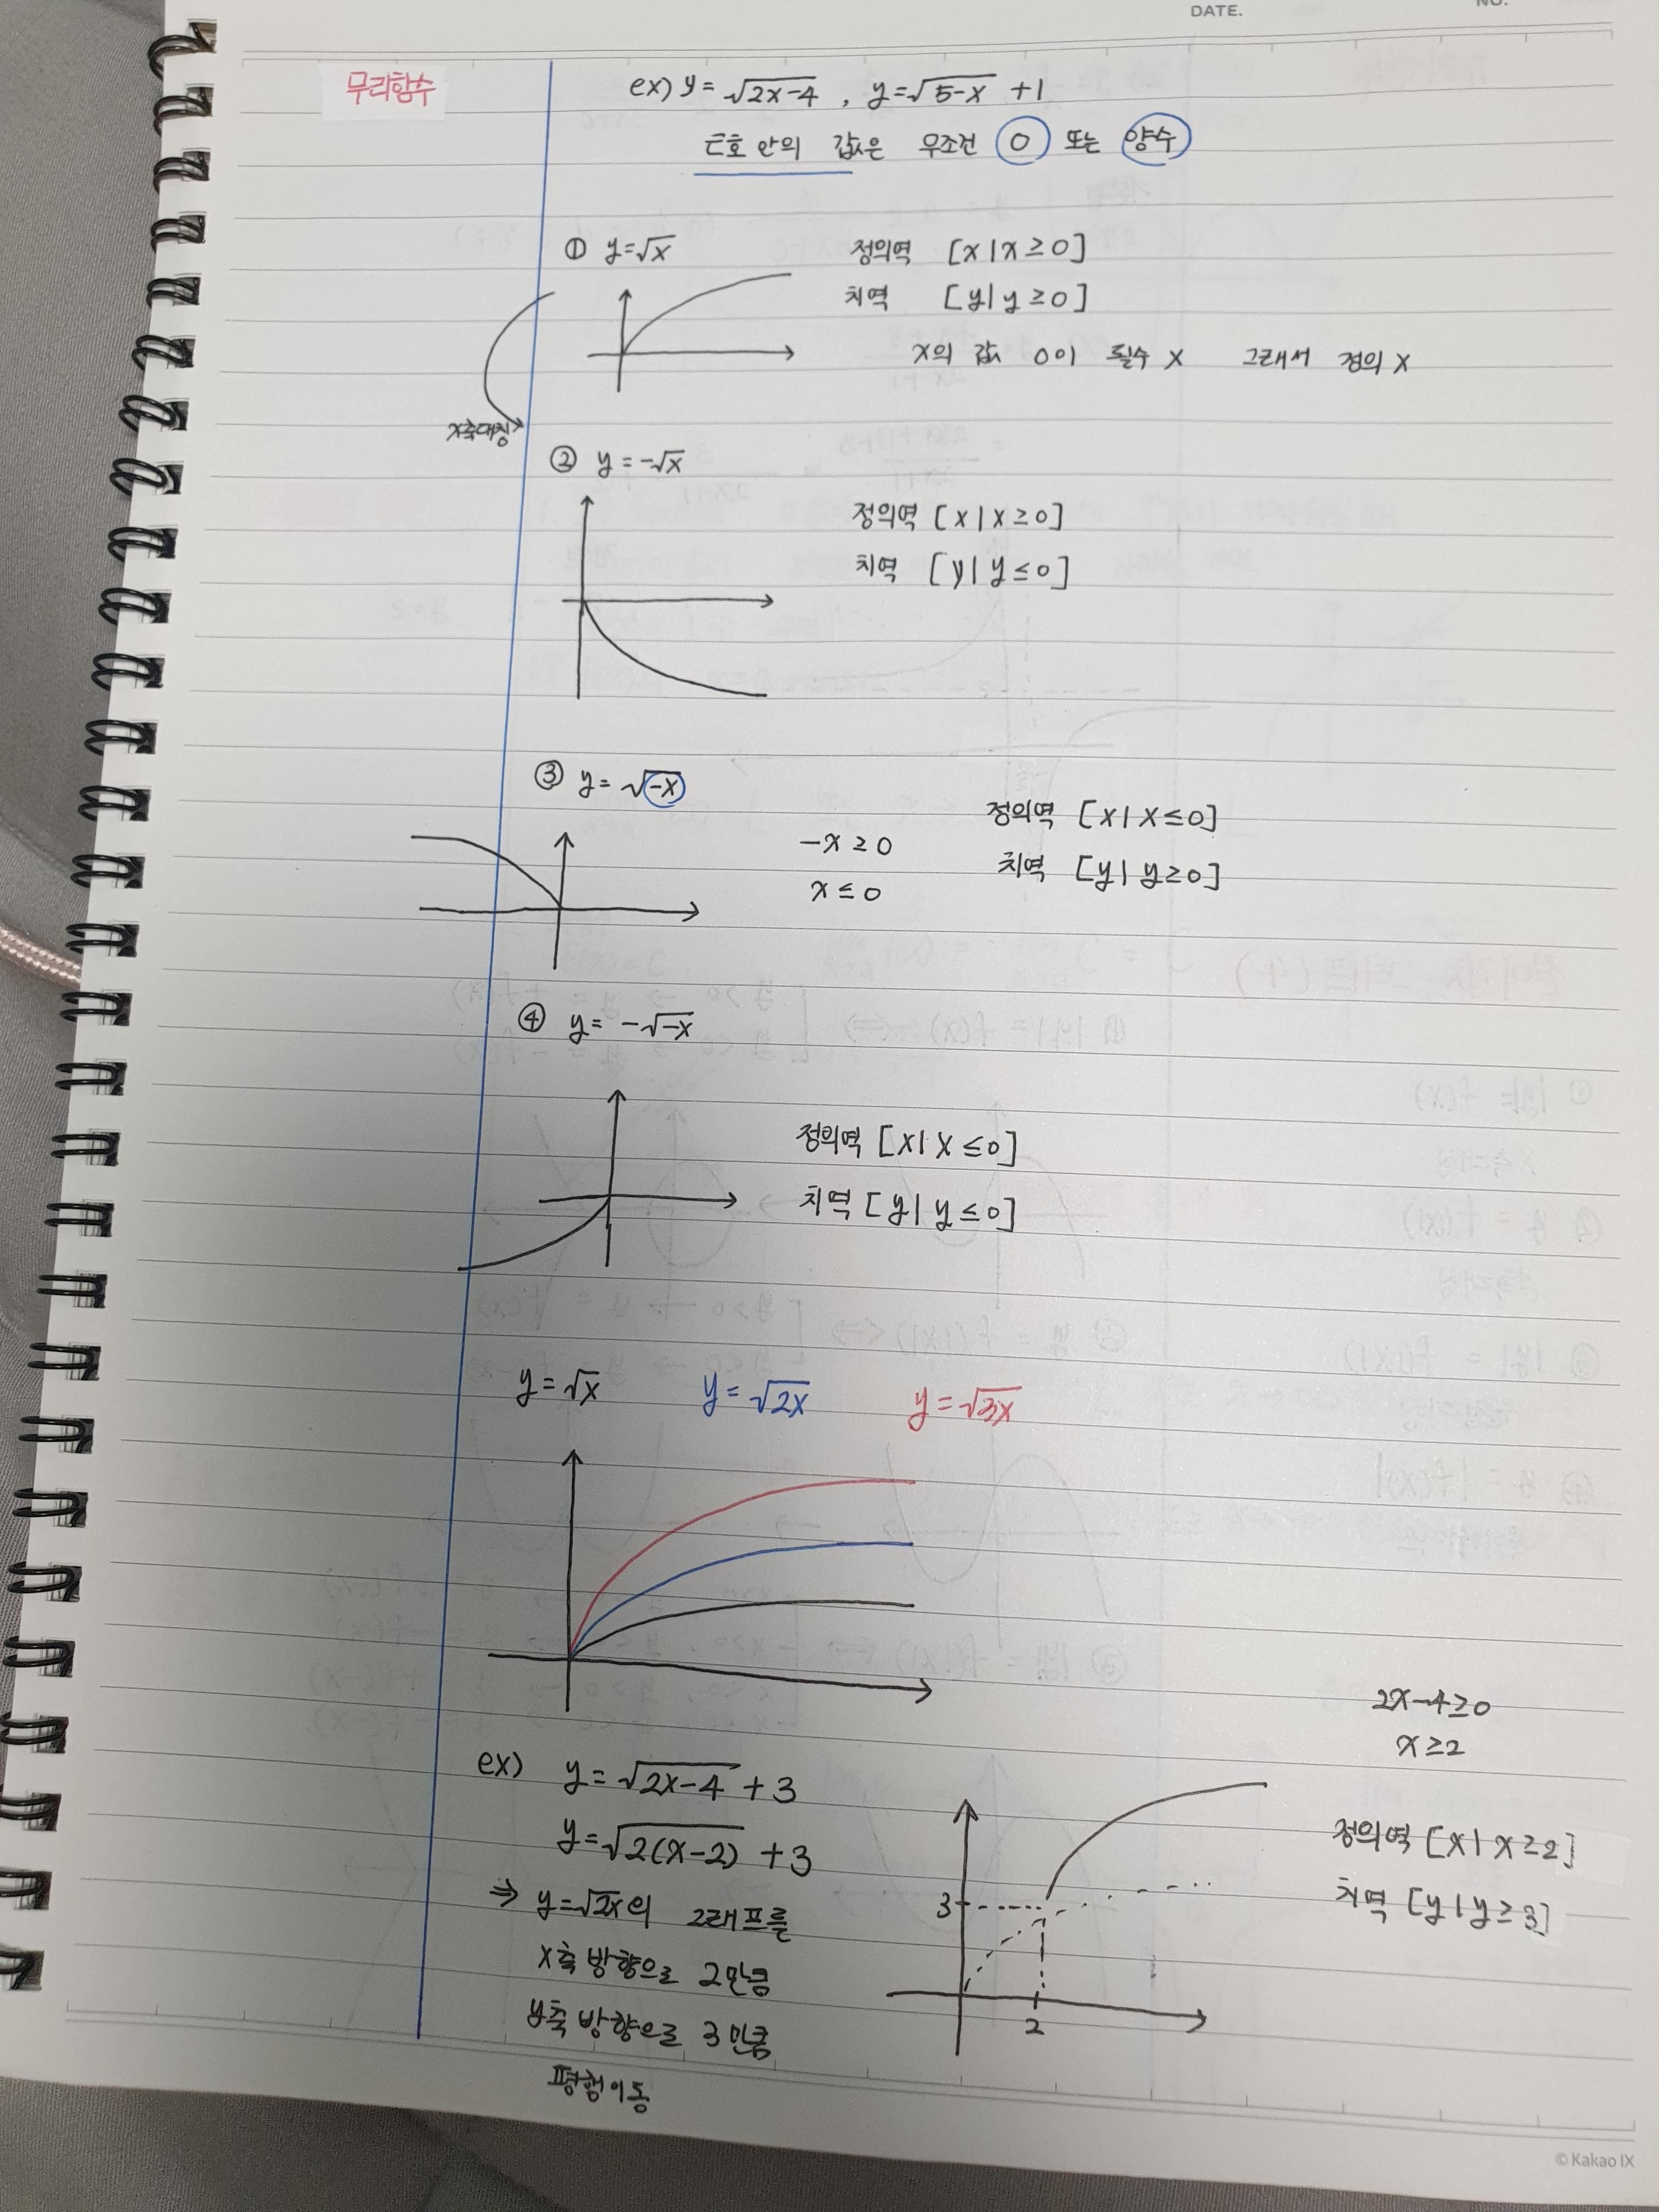 DATE.
NO.
무리함수
ex) y = √2x-4 , y = √5-x +1
루트 안의 값은 무조건 0 또는 양수
① y=√x
정의역 [x|x≥0]
치역 [y|y≥0]
x의 값 0이 될수 X 그래서 정의 X
x축대칭
② y = -√x
정의역 [x|x≥0]
치역 [y|y≤0]
③ y = √-x
-x ≥ 0
x ≤ 0
정의역 [x|x≤0]
치역 [y|y≥0]
④ y = -√-x
정의역 [x|x≤0]
치역 [y|y≤0]
y=√x y=√2x y=√3x
2x-4≥0
x≥2
ex) y = √2x-4 + 3
y=√2(x-2) + 3
⇒ y=√2x의 그래프를
x축 방향으로 2만큼
y축 방향으로 3만큼
평행이동
3
2
정의역 [x|x≥2]
치역 [y|y≥3]
© Kakao IX